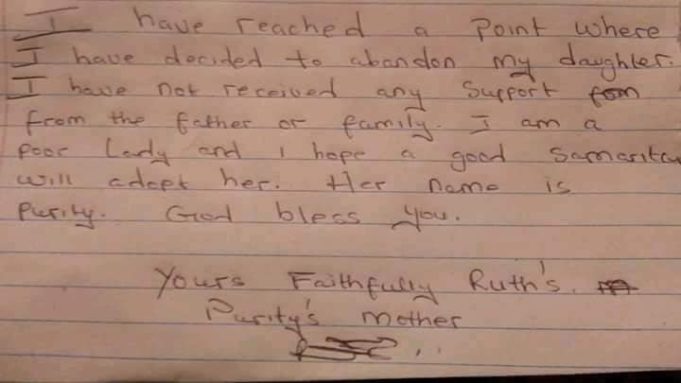 I have reached a Point where
I have decided to abandon my daughter.
I have not received any Support
from the father or family. I am a
poor Lady and i hope a good Samaritan
will adopt her. Her name is
Purity. God bless you.
Yours Faithfully Ruth's.
Purity's mother